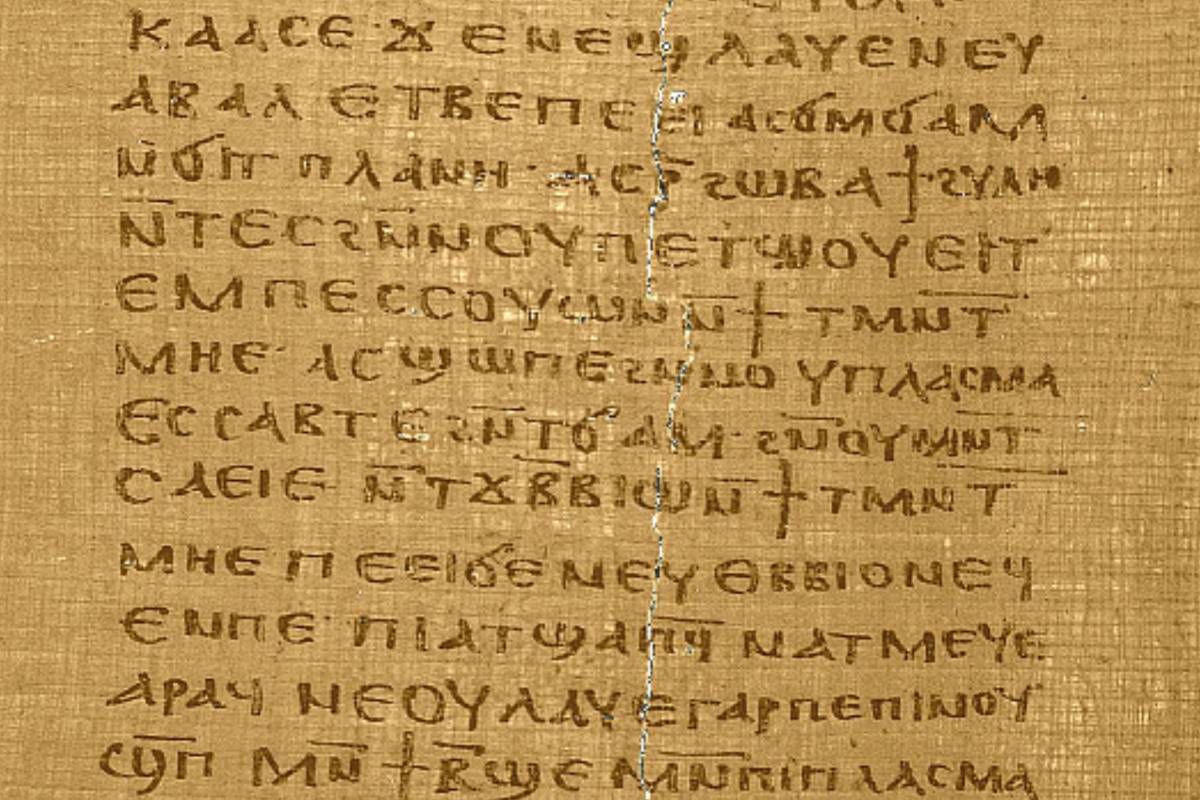 ⲕⲁⲁⲥⲉ ϫⲉⲛⲉϣ ⲗⲁⲩⲉ ⲛⲉⲩ
ⲁⲃⲁⲗ ⲉⲧⲃⲉⲡⲉⲉⲓ ⲁⲥϭⲙϭⲁⲙ
ⲛ̄ϭⲓⲧⲡⲗⲁⲛⲏ· ⲁⲥⲣ̄ϩⲱⲃ ⲁϯϩⲩⲗⲏ
ⲛ̄ⲧⲉⲥϩⲛ̄ⲛⲟⲩⲡⲉⲧϣⲟⲩⲉⲓⲧ
ⲉⲙⲡⲉⲥⲥⲟⲩⲱⲛ ⲛ̄ϯⲧⲙⲛ̄ⲧ
ⲙⲏⲉ· ⲁⲥϣⲱⲡⲉ ϩⲛⲛⲟⲩⲡⲗⲁⲥⲙⲁ
ⲉⲥⲥⲁⲃⲧⲉ ϩⲛ̄ⲧϭⲁⲙ· ϩⲛ̄ⲟⲩⲙⲛ̄ⲧ
ⲥⲁⲉⲓⲉ ⲛ̄ⲧϫⲃ̄ⲃⲓⲱ ⲛ̄ϯⲧⲙⲛ̄ⲧ
ⲙⲏⲉ ⲡⲉⲉⲓϭⲉ ⲛⲉⲩⲑⲃⲃⲓⲟ ⲛⲉϥ
ⲉⲛⲡⲉ· ⲡⲓⲁⲧϣⲁⲡϥ̄ ⲛⲁⲧⲙⲉⲩⲉ
ⲁⲣⲁϥ ⲛⲉⲟⲩⲗⲁⲩⲉ ⲅⲁⲣⲡⲉ ⲡⲓⲛⲟⲩ
ϣⲡ̄ ⲙⲛ̄ϯⲃ̄ϣⲉ ⲙⲛ̄ⲡⲓⲡⲗⲁⲥⲙⲁ